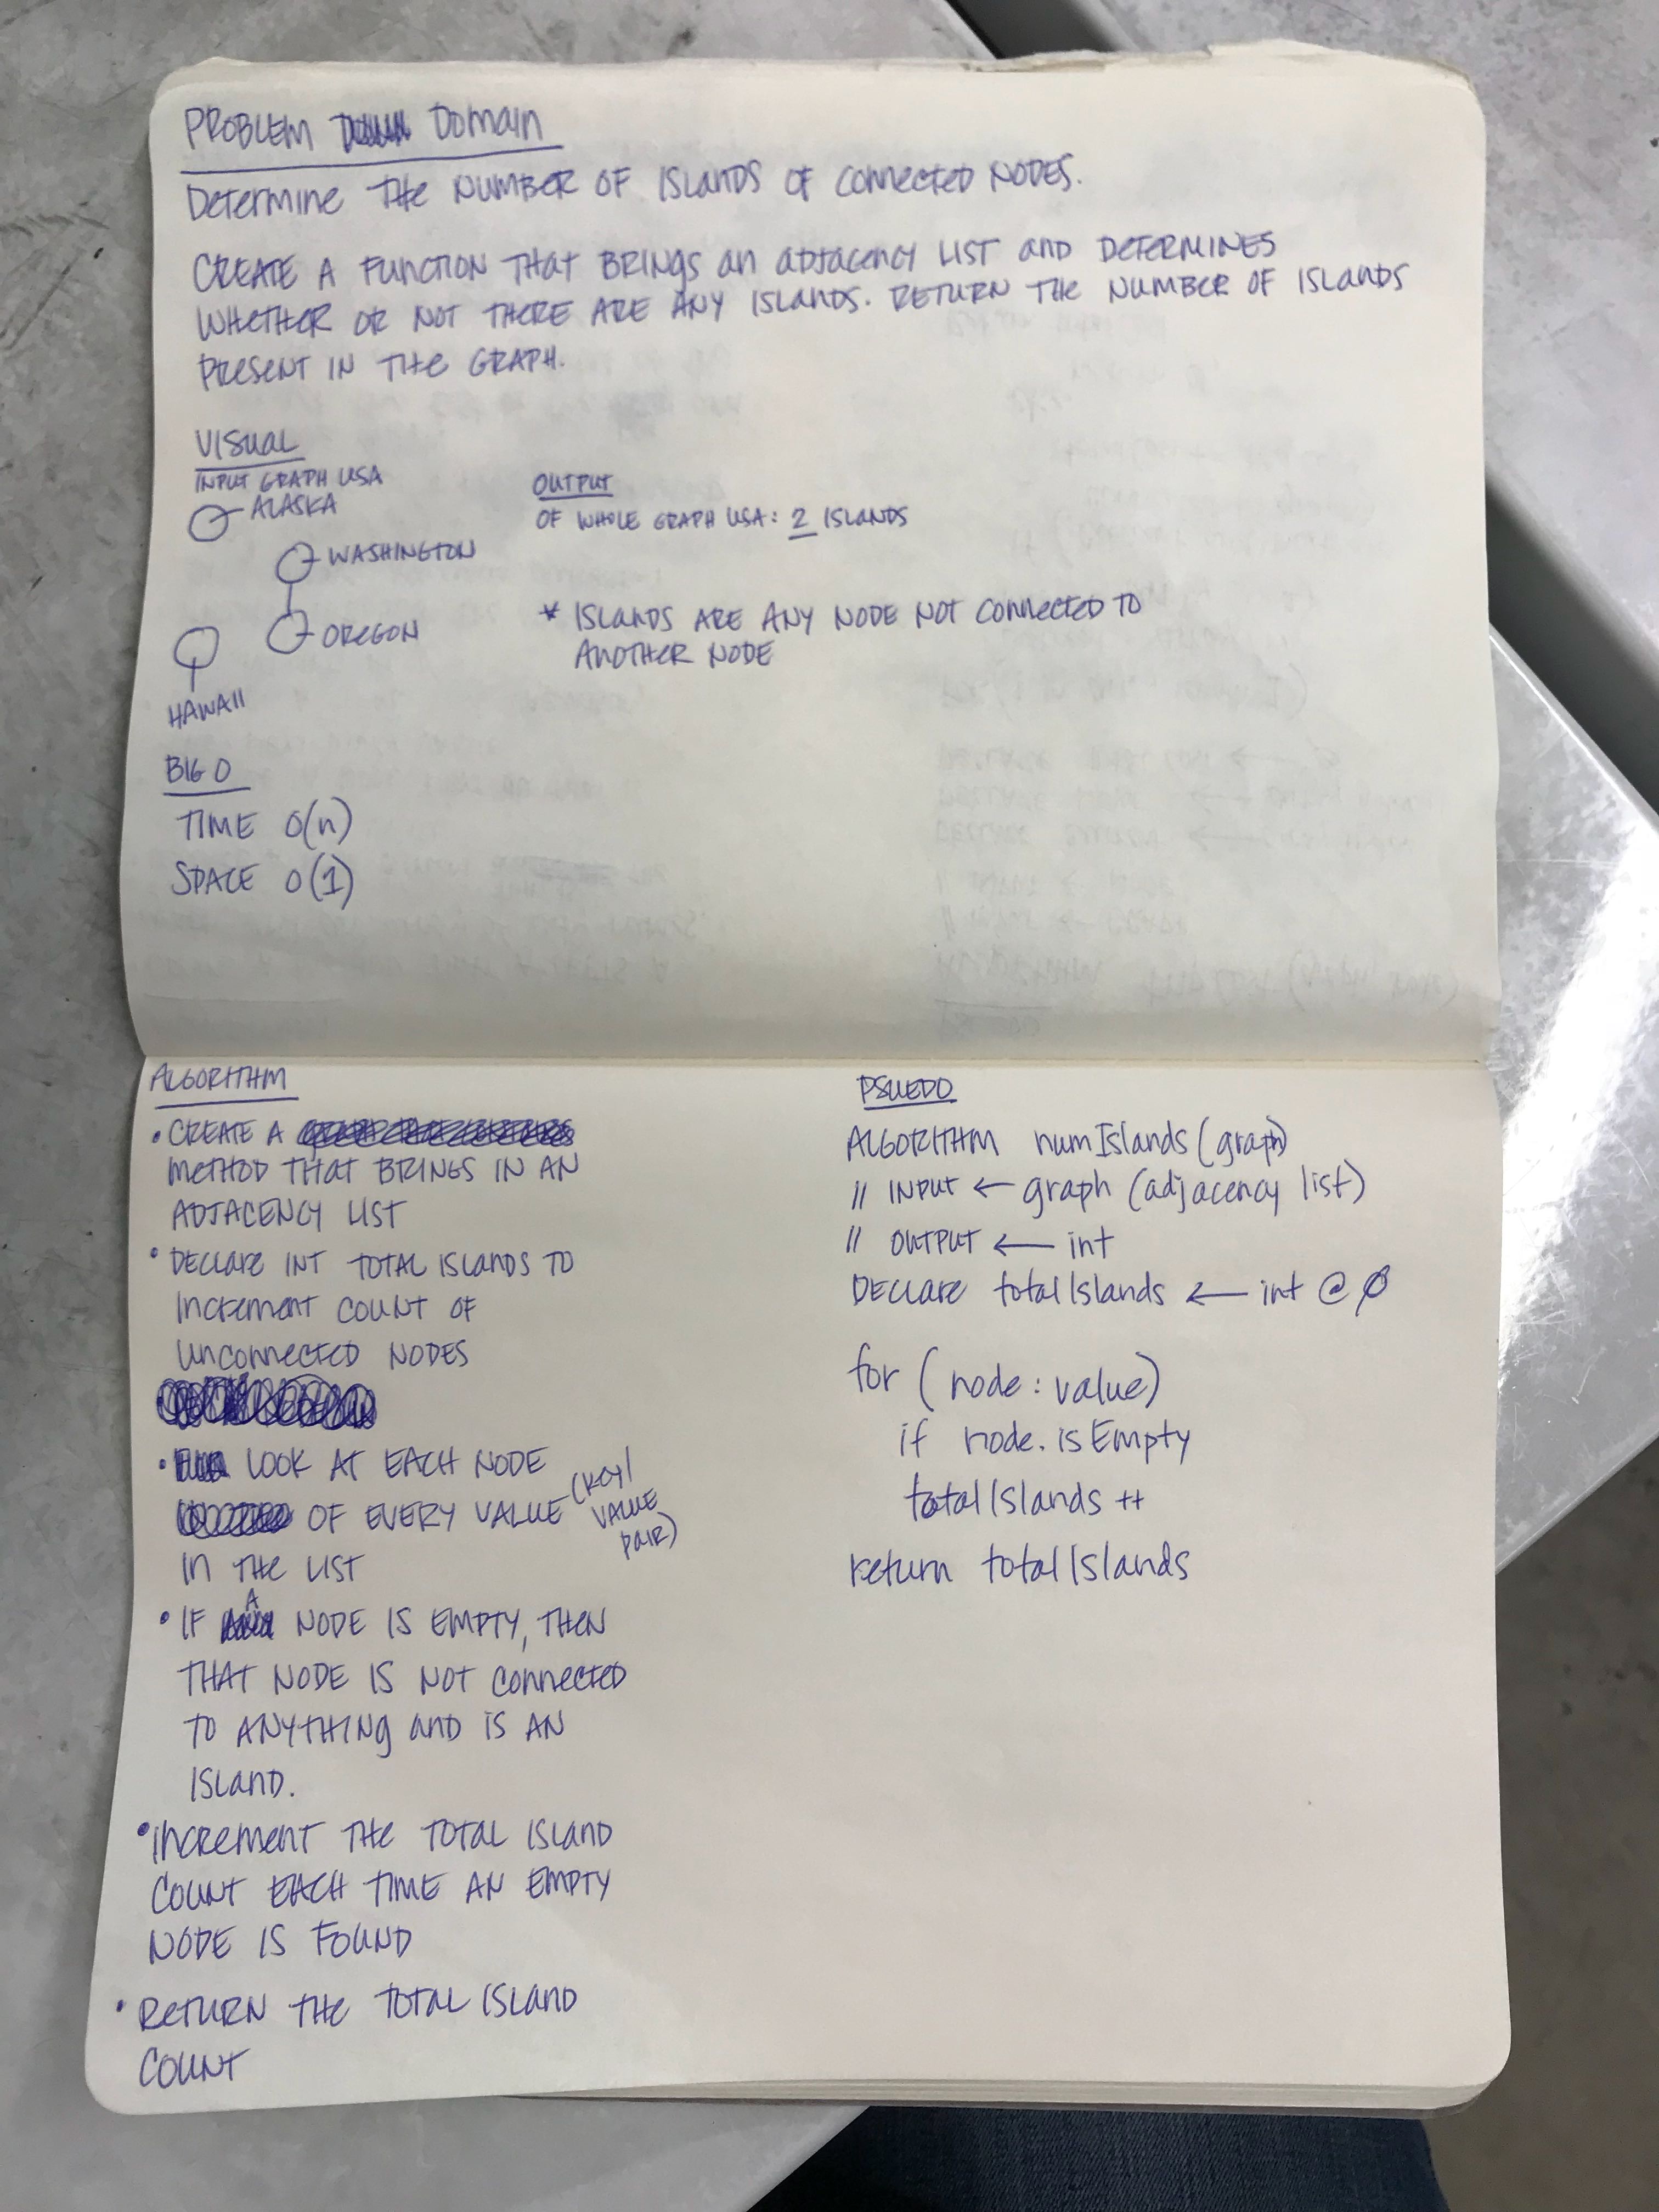 PROBLEM DOMAIN
DETERMINE THE NUMBER OF ISLANDS OF CONNECTED NODES.
CREATE A FUNCTION THAT BRINGS AN ADJACENCY LIST AND DETERMINES
WHETHER OR NOT THERE ARE ANY ISLANDS. RETURN THE NUMBER OF ISLANDS
PRESENT IN THE GRAPH.
VISUAL
INPUT GRAPH USA
ALASKA
WASHINGTON
OREGON
HAWAII
OUTPUT
OF WHOLE GRAPH USA: 2 ISLANDS
* ISLANDS ARE ANY NODE NOT CONNECTED TO
ANOTHER NODE
BIG O
TIME O(n)
SPACE O(1)
ALGORITHM
• CREATE A
METHOD THAT BRINGS IN AN
ADJACENCY LIST
• DECLARE INT TOTAL ISLANDS TO
INCREMENT COUNT OF
UNCONNECTED NODES
• LOOK AT EACH NODE
OF EVERY VALUE (KEY/
VALUE
PAIR)
IN THE LIST
• IF A NODE IS EMPTY, THEN
THAT NODE IS NOT CONNECTED
TO ANYTHING AND IS AN
ISLAND.
• INCREMENT THE TOTAL ISLAND
COUNT EACH TIME AN EMPTY
NODE IS FOUND
• RETURN THE TOTAL ISLAND
COUNT
PSUEDO
ALGORITHM numIslands (graph)
// INPUT ← graph (adjacency list)
// OUTPUT ← int
DECLARE totalIslands ← int @ 0
for (node : value)
if node.isEmpty
totalIslands ++
return totalIslands